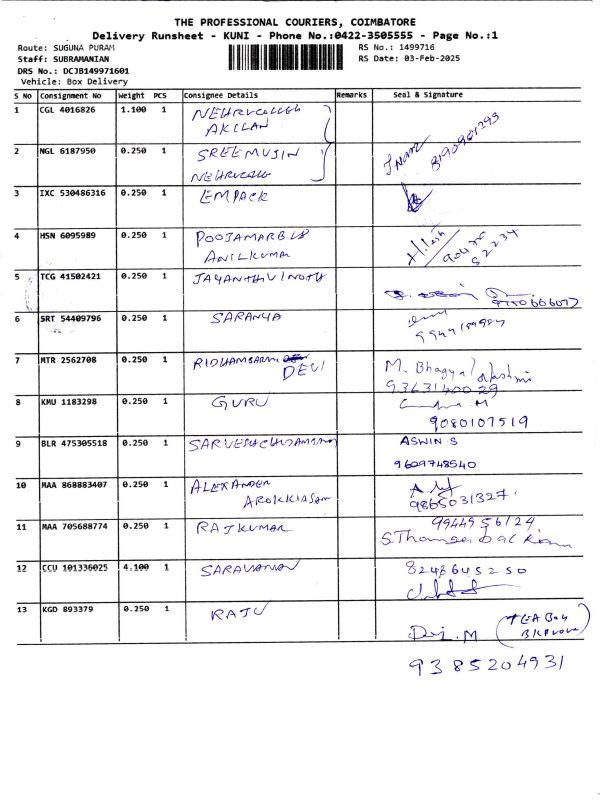 THE PROFESSIONAL COURIERS, COIMBATORE
Delivery Runsheet - KUNI - Phone No.:0422-3505555 - Page No.:1
Route: SUGUNA PURAM RS No.: 1499716
Staff: SUBRAMANIAN RS Date: 03-Feb-2025
DRS No.: DCJB149971601
Vehicle: Box Delivery
S No Consignment No Weight PCS Consignee Details Remarks Seal & Signature
1 CGL 4016826 1.100 1 NEHRUCOLLEGE
AKILAN
2 NGL 6187950 0.250 1 SREEMUJIN 8190901293
3 IXC 530486316 0.250 1 EMPACK
4 HSN 6095989 0.250 1 POOJAMARBLS
ANILKUMAR
5 TCG 41502421 0.250 1 JAYANTHVINOTH
6 SRT 54409796 0.250 1 SARANYA
7 MTR 2562708 0.250 1 DEVI M. Bhagyalakshmi
9363140029
8 KMU 1183298 0.250 1 GURU
9080107519
9 BLR 475305518 0.250 1 ASWIN S
9609748540
10 MAA 868883407 0.250 1 ALEXANDER
AROKKIASAM 9865031327
11 MAA 705688774 0.250 1 RAJKUMAR 9944956124
12 CCU 101336025 4.100 1 SARAVANAN 8248645250
13 KGD 893379 0.250 1 RAJU
9385204931